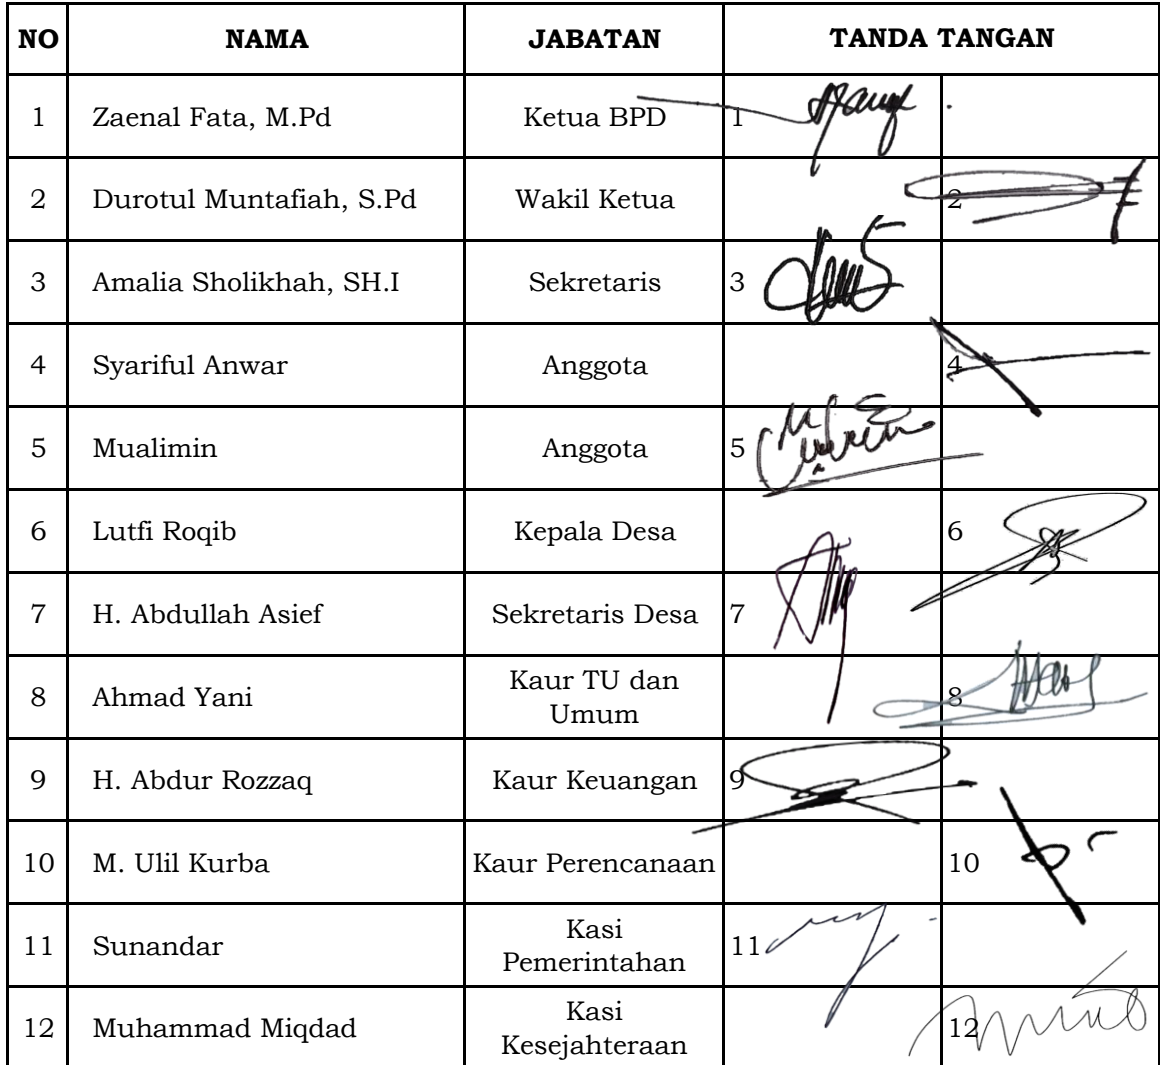 NO NAMA JABATAN TANDA TANGAN
1 Zaenal Fata, M.Pd Ketua BPD 1
2 Durotul Muntafiah, S.Pd Wakil Ketua 2
3 Amalia Sholikhah, SH.I Sekretaris 3
4 Syariful Anwar Anggota 4
5 Mualimin Anggota 5
6 Lutfi Roqib Kepala Desa 6
7 H. Abdullah Asief Sekretaris Desa 7
8 Ahmad Yani Kaur TU dan
Umum 8
9 H. Abdur Rozzaq Kaur Keuangan 9
10 M. Ulil Kurba Kaur Perencanaan 10
11 Sunandar Kasi
Pemerintahan 11
12 Muhammad Miqdad Kasi
Kesejahteraan 12